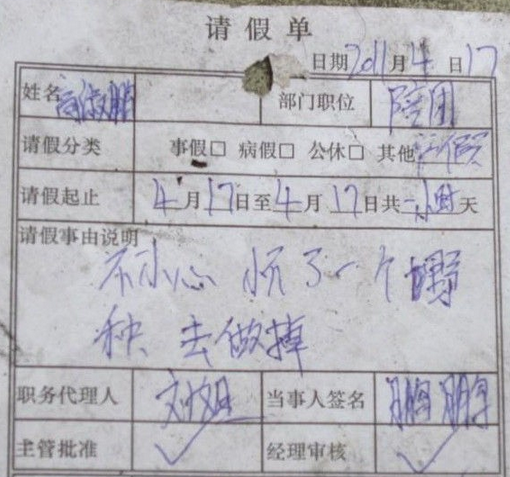 请假单
日期2011月4日17
姓名 部门职位 陪团
请假分类 事假□ 病假□ 公休□ 其他
请假起止 4月17日至4月17日共一小时天
请假事由说明
不小心怀了一个野
种去做掉
职务代理人 当事人签名 鹏鹏
主管批准 ✓ 经理审核 ✓